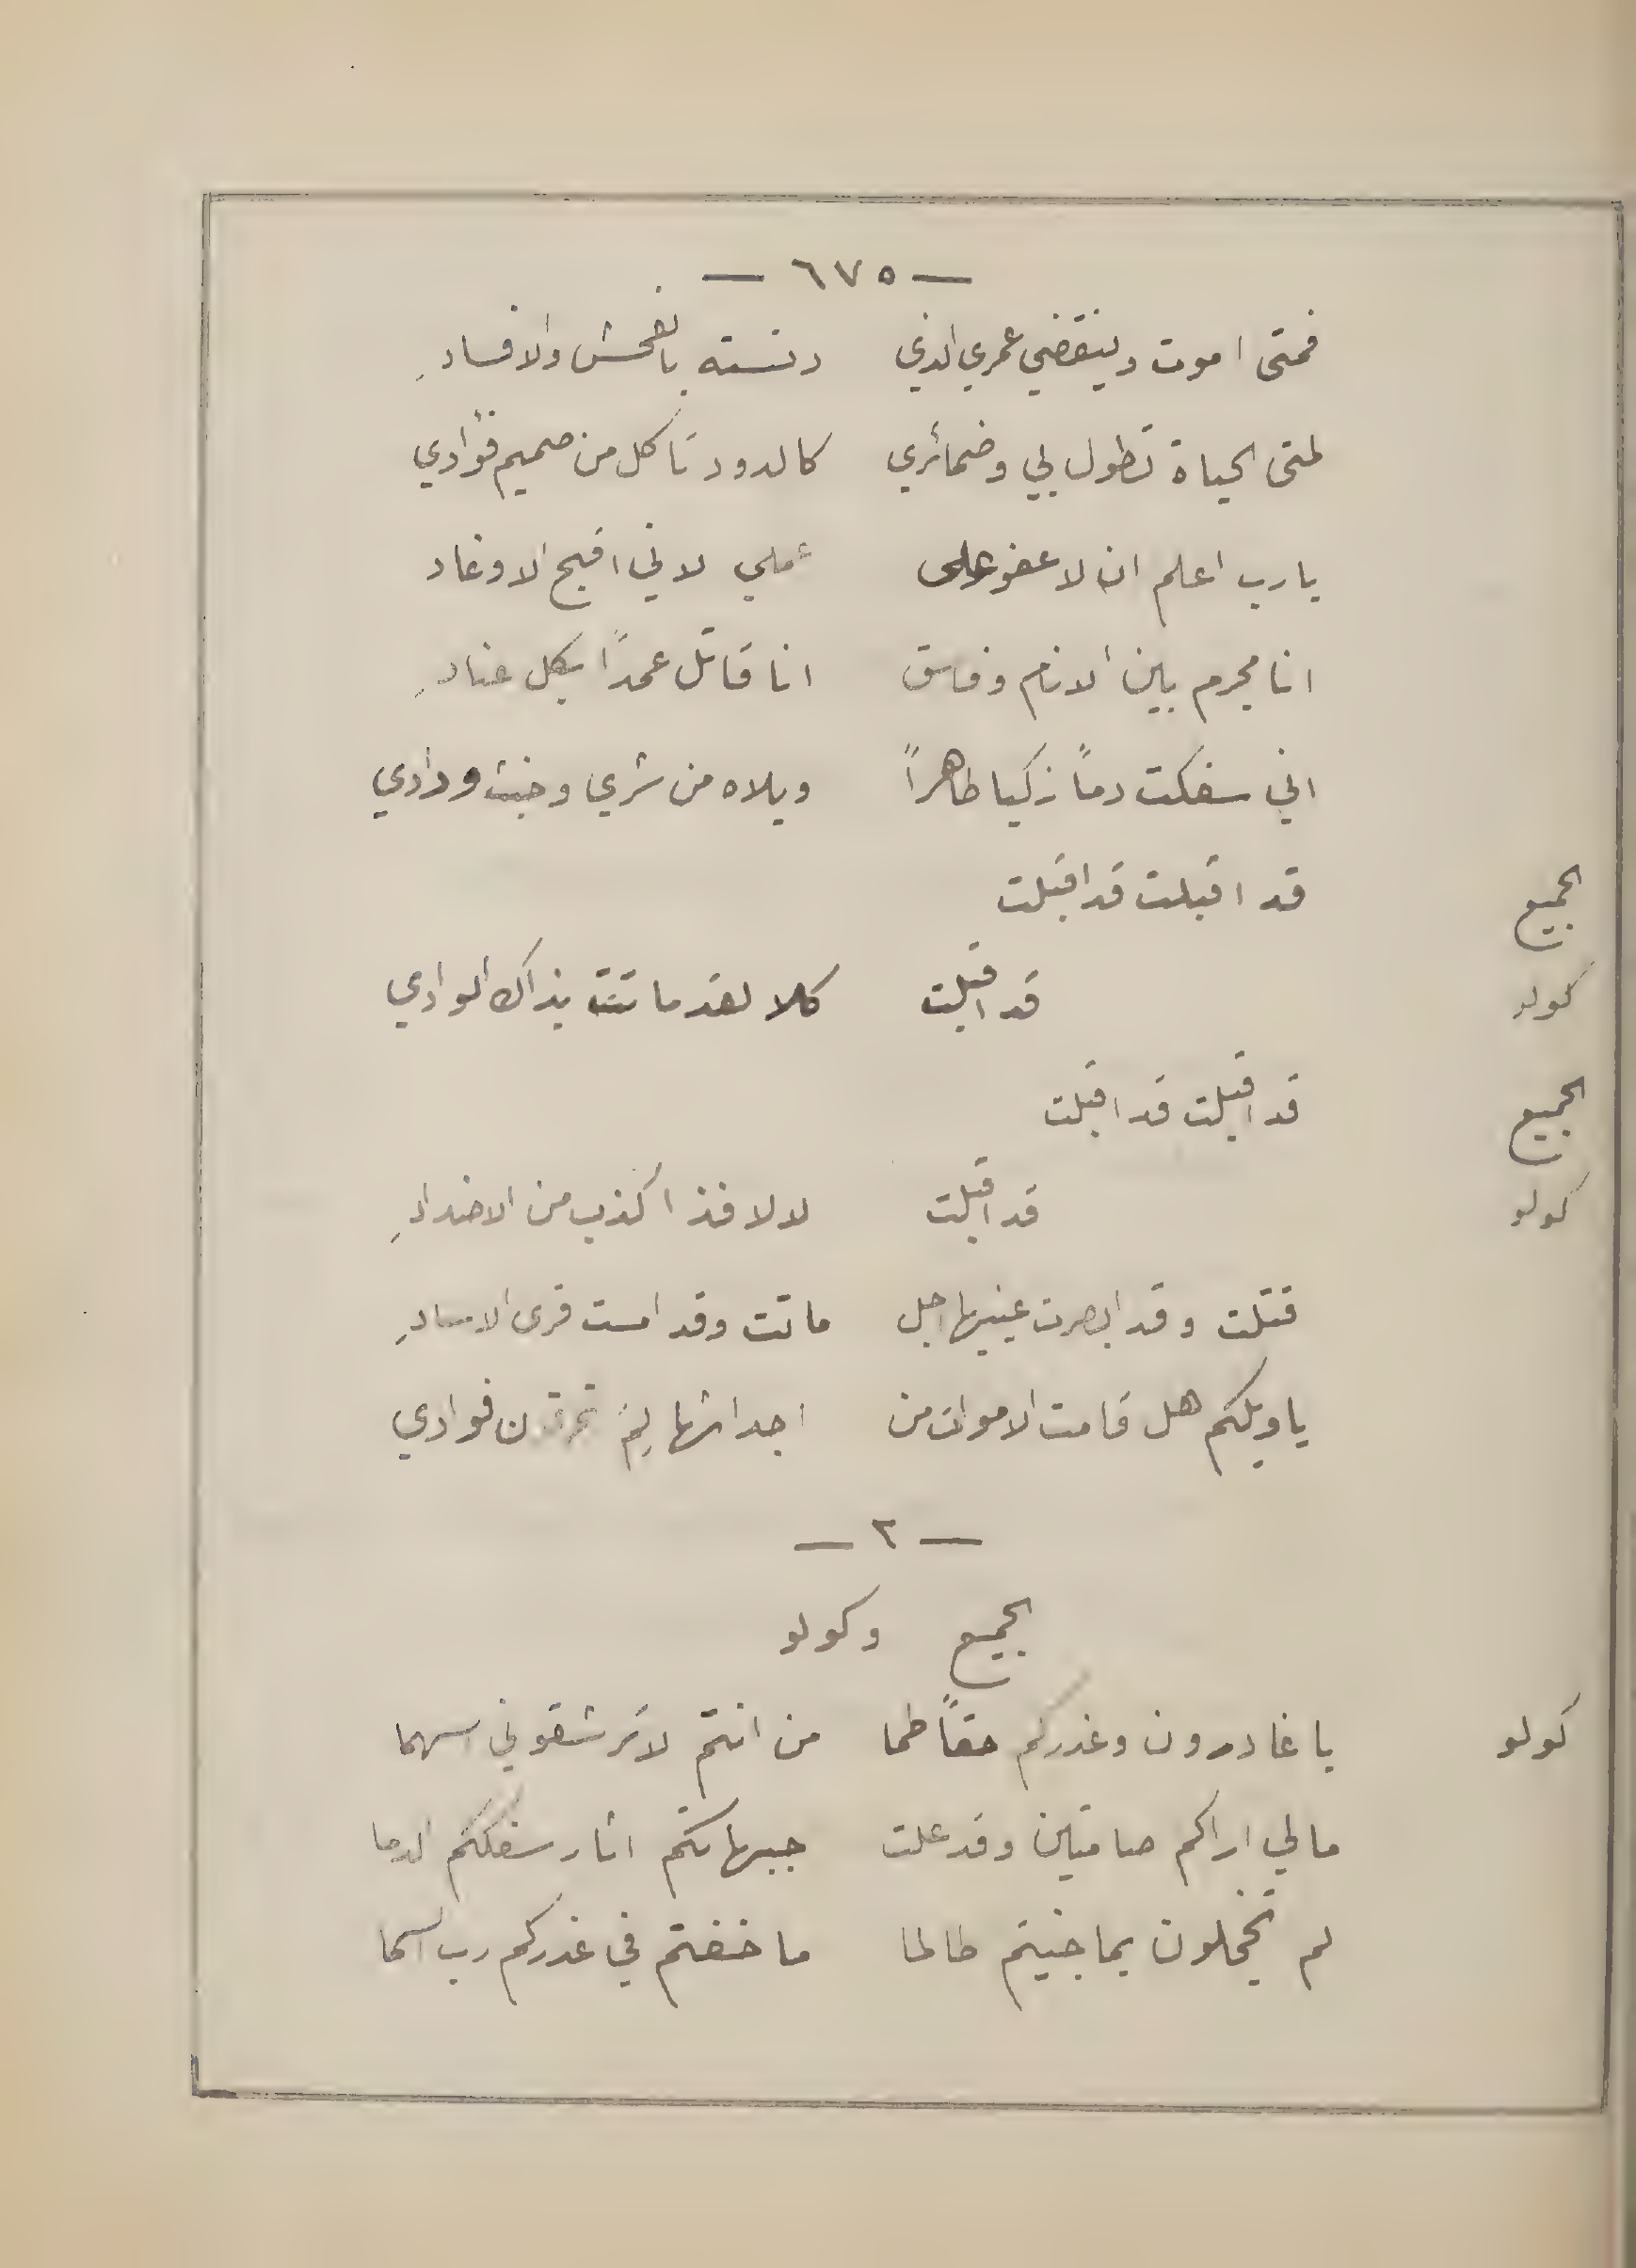 — ٦٧٥ —
فمتى اموت وينقضي عمري الذي دنسته بالفحش والافسادِ
لمتى الحياة تطول بي وضمائري كالدود تاكل من صميم فؤادي
يارب اعلم ان لا عفو على عملي لاني اقبح الاوغاد
انا مجرم بين الانام وفاسق انا قاتل عمدًا بكل عنادِ
اني سفكت دماً زكيا طاهراً ويلاه من شري وخبث ودادي
الجميع قد اقبلت قد اقبلت
كولو قد اقبلت كلا لقد ماتت بذاك الوادي
الجميع قد اقبلت قد اقبلت
كولو قد اقبلت لا لا فذا كذب من الاضدادِ
قتلت وقد ابصرت عينيها اجل ماتت وقد امست قرى الاسادِ
ياويلكم هل قامت الاموات من اجداثها لِمَ فوادي
— ٢ —
الجميع وكولو
كولو يا غادرون وغدركم حقاً طما من انتم لا ترشقوني اسهما
مالي اراكم صامتين وقد علت جبهاتكم اثار سفككم الدما
لم تخجلون بما جنيتم طالما ما خفتم في غدركم رب السما